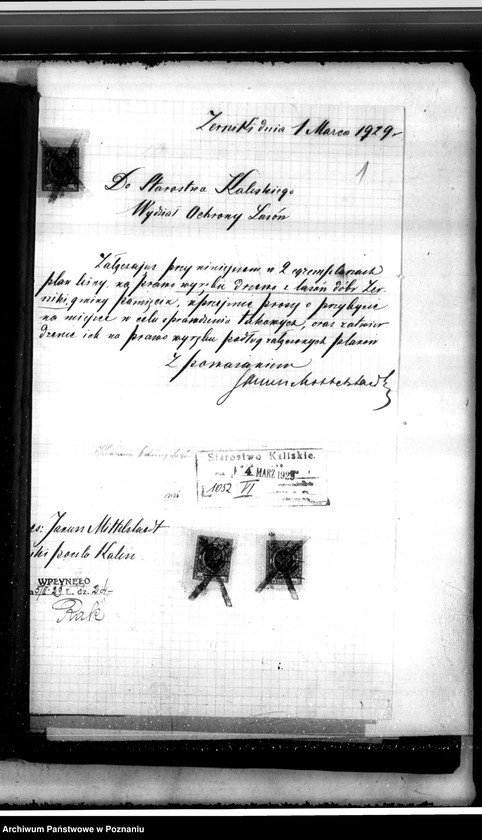 Zerniki dnia 1 Marca 1929 r
1
Do Starostwa Kaliskiego
Wydział Ochrony Lasów
Załączając przy niniejszem w 2 egzemplarzach
plan na prawo wyrębu drzewa z lasów dóbr Żer-
niki, gminy Pamięcin, uprzejmie proszę o przybycie
na miejsce w celu sprawdzenia takowych, oraz zatwier
dzenie ich na prawo wyrębu podług załączonych planów
Z poważaniem
Janun Mittelstaedt
Starostwo Kaliskie.
4 MARZ 1929
1052 VI
es: Janun Mittelstaedt
iki poczta Kalisz
WPŁYNĘŁO
29 r. dz. 
Rak
Archiwum Państwowe w Poznaniu